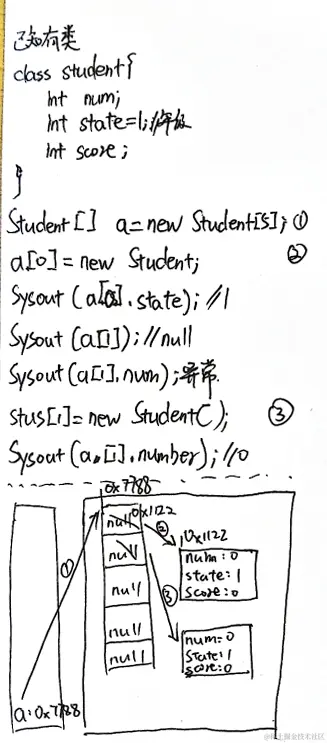 已知有类
class student{
int num;
int state=1;//年级
int score;
}
Student[] a=new Student[5]; ①
a[0]=new Student; ②
Sysout(a[0].state);//1
Sysout(a[1]);//null
Sysout(a[1].num);异常.
stus[1]=new Student(); ③
Sysout(a.[1].number);//0
0x7788
null 0x1122
null
null
null
null
①
②
③
0x1122
num:0
state:1
score:0
num=0
State:1
score:0
a:0x7788
@稀土掘金技术社区